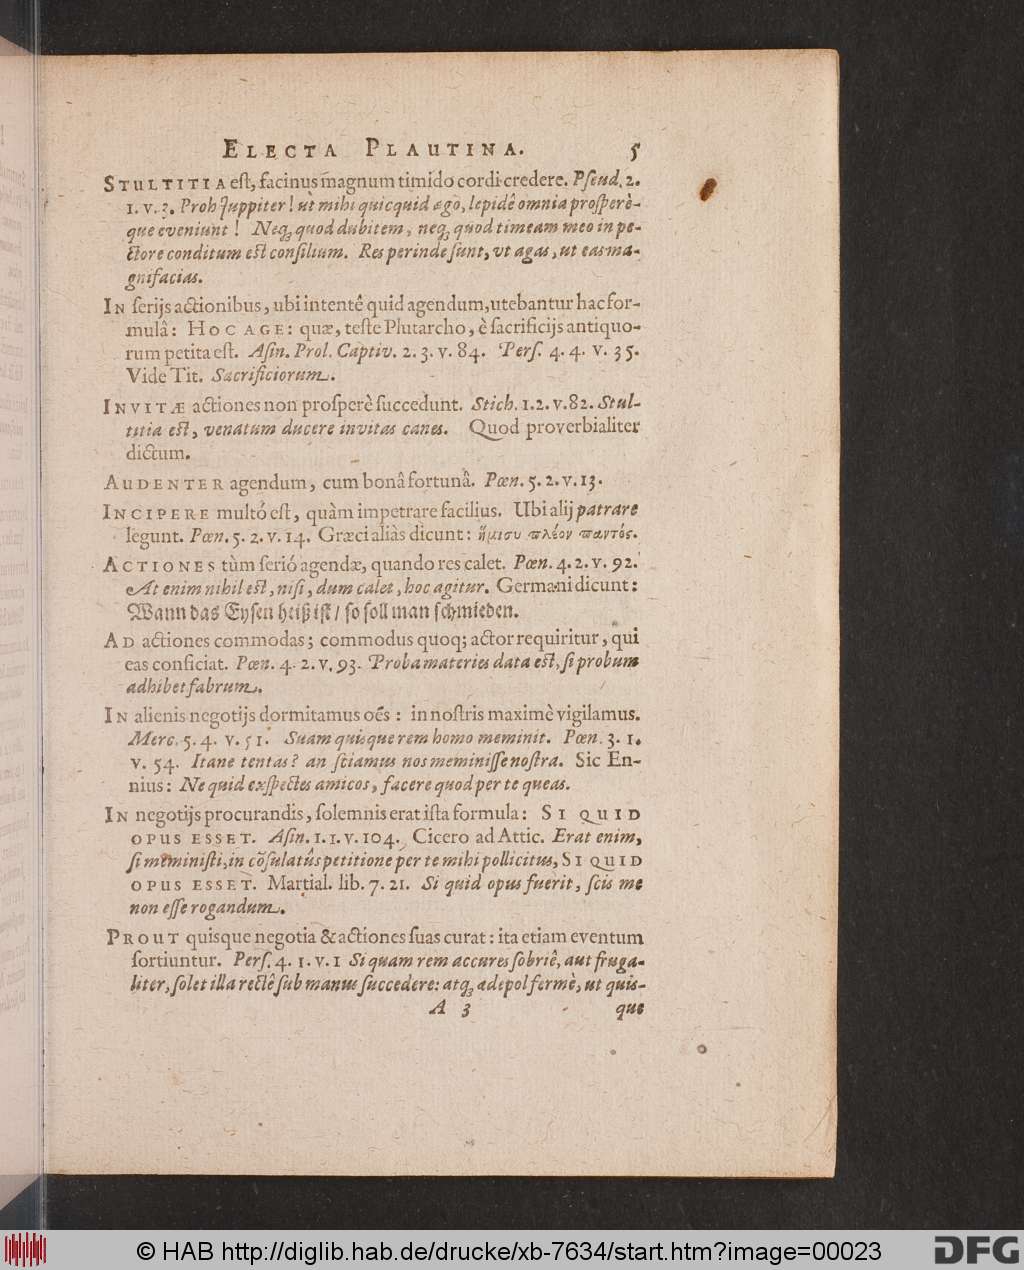 ELECTA PLAUTINA. 5
STULTITIA est, facinus magnum timido cordi credere. Pseud. 2.
1. v. 3. Proh Juppiter! ut mihi quicquid ago, lepidê omnia prosperè-
que eveniunt! Neq; quod dubitem, neq; quod timeam meo in pe-
ctore conditum est consilium. Res perinde sunt, vt agas, ut eas ma-
gnifacias.
IN serijs actionibus, ubi intentè quid agendum, utebantur hac for-
mulâ: HOC AGE: quæ, teste Plutarcho, è sacrificijs antiquo-
rum petita est. Asin. Prol. Captiv. 2. 3. v. 84. Pers. 4. 4. v. 35.
Vide Tit. Sacrificiorum.
INVITÆ actiones non prosperè succedunt. Stich. 1. 2. v. 82. Stul-
titia est, venatum ducere invitas canes. Quod proverbialiter
dictum.
AUDENTER agendum, cum bonâ fortunâ. Pœn. 5. 2. v. 13.
INCIPERE multó est, quàm impetrare facilius. Ubi alij patrare
legunt. Pœn. 5. 2. v. 14. Græci aliàs dicunt: ἥμισυ πλέον παντός.
ACTIONES tùm serió agendæ, quando res calet. Pœn. 4. 2. v. 92.
At enim nihil est, nisi, dum calet, hoc agitur. Germani dicunt:
Wann das Eysen heiß ist / so soll man schmieden.
AD actiones commodas; commodus quoq; actor requiritur, qui
eas conficiat. Pœn. 4. 2. v. 93. Proba materies data est, si probum
adhibet fabrum.
IN alienis negotijs dormitamus oẽs: in nostris maximè vigilamus.
Merc. 5. 4. v. 51. Suam quisque rem homo meminit. Pœn. 3. 1.
v. 54. Itane tentas? an sciamus nos meminisse nostra. Sic En-
nius: Ne quid exspectes amicos, facere quod per te queas.
IN negotijs procurandis, solemnis erat ista formula: SI QUID
OPUS ESSET. Asin. 1. 1. v. 104. Cicero ad Attic. Erat enim,
si meministi, in cõsulatûs petitione per te mihi pollicitus, SI QUID
OPUS ESSET. Martial. lib. 7. 21. Si quid opus fuerit, scis me
non esse rogandum.
PROUT quisque negotia & actiones suas curat: ita etiam eventum
sortiuntur. Pers. 4. 1. v. 1 Si quam rem accures sobriè, aut fruga-
liter, solet illa rectè sub manus succedere: atq; ædepol fermè, ut quis-
A 3 que
© HAB http://diglib.hab.de/drucke/xb-7634/start.htm?image=00023
DFG